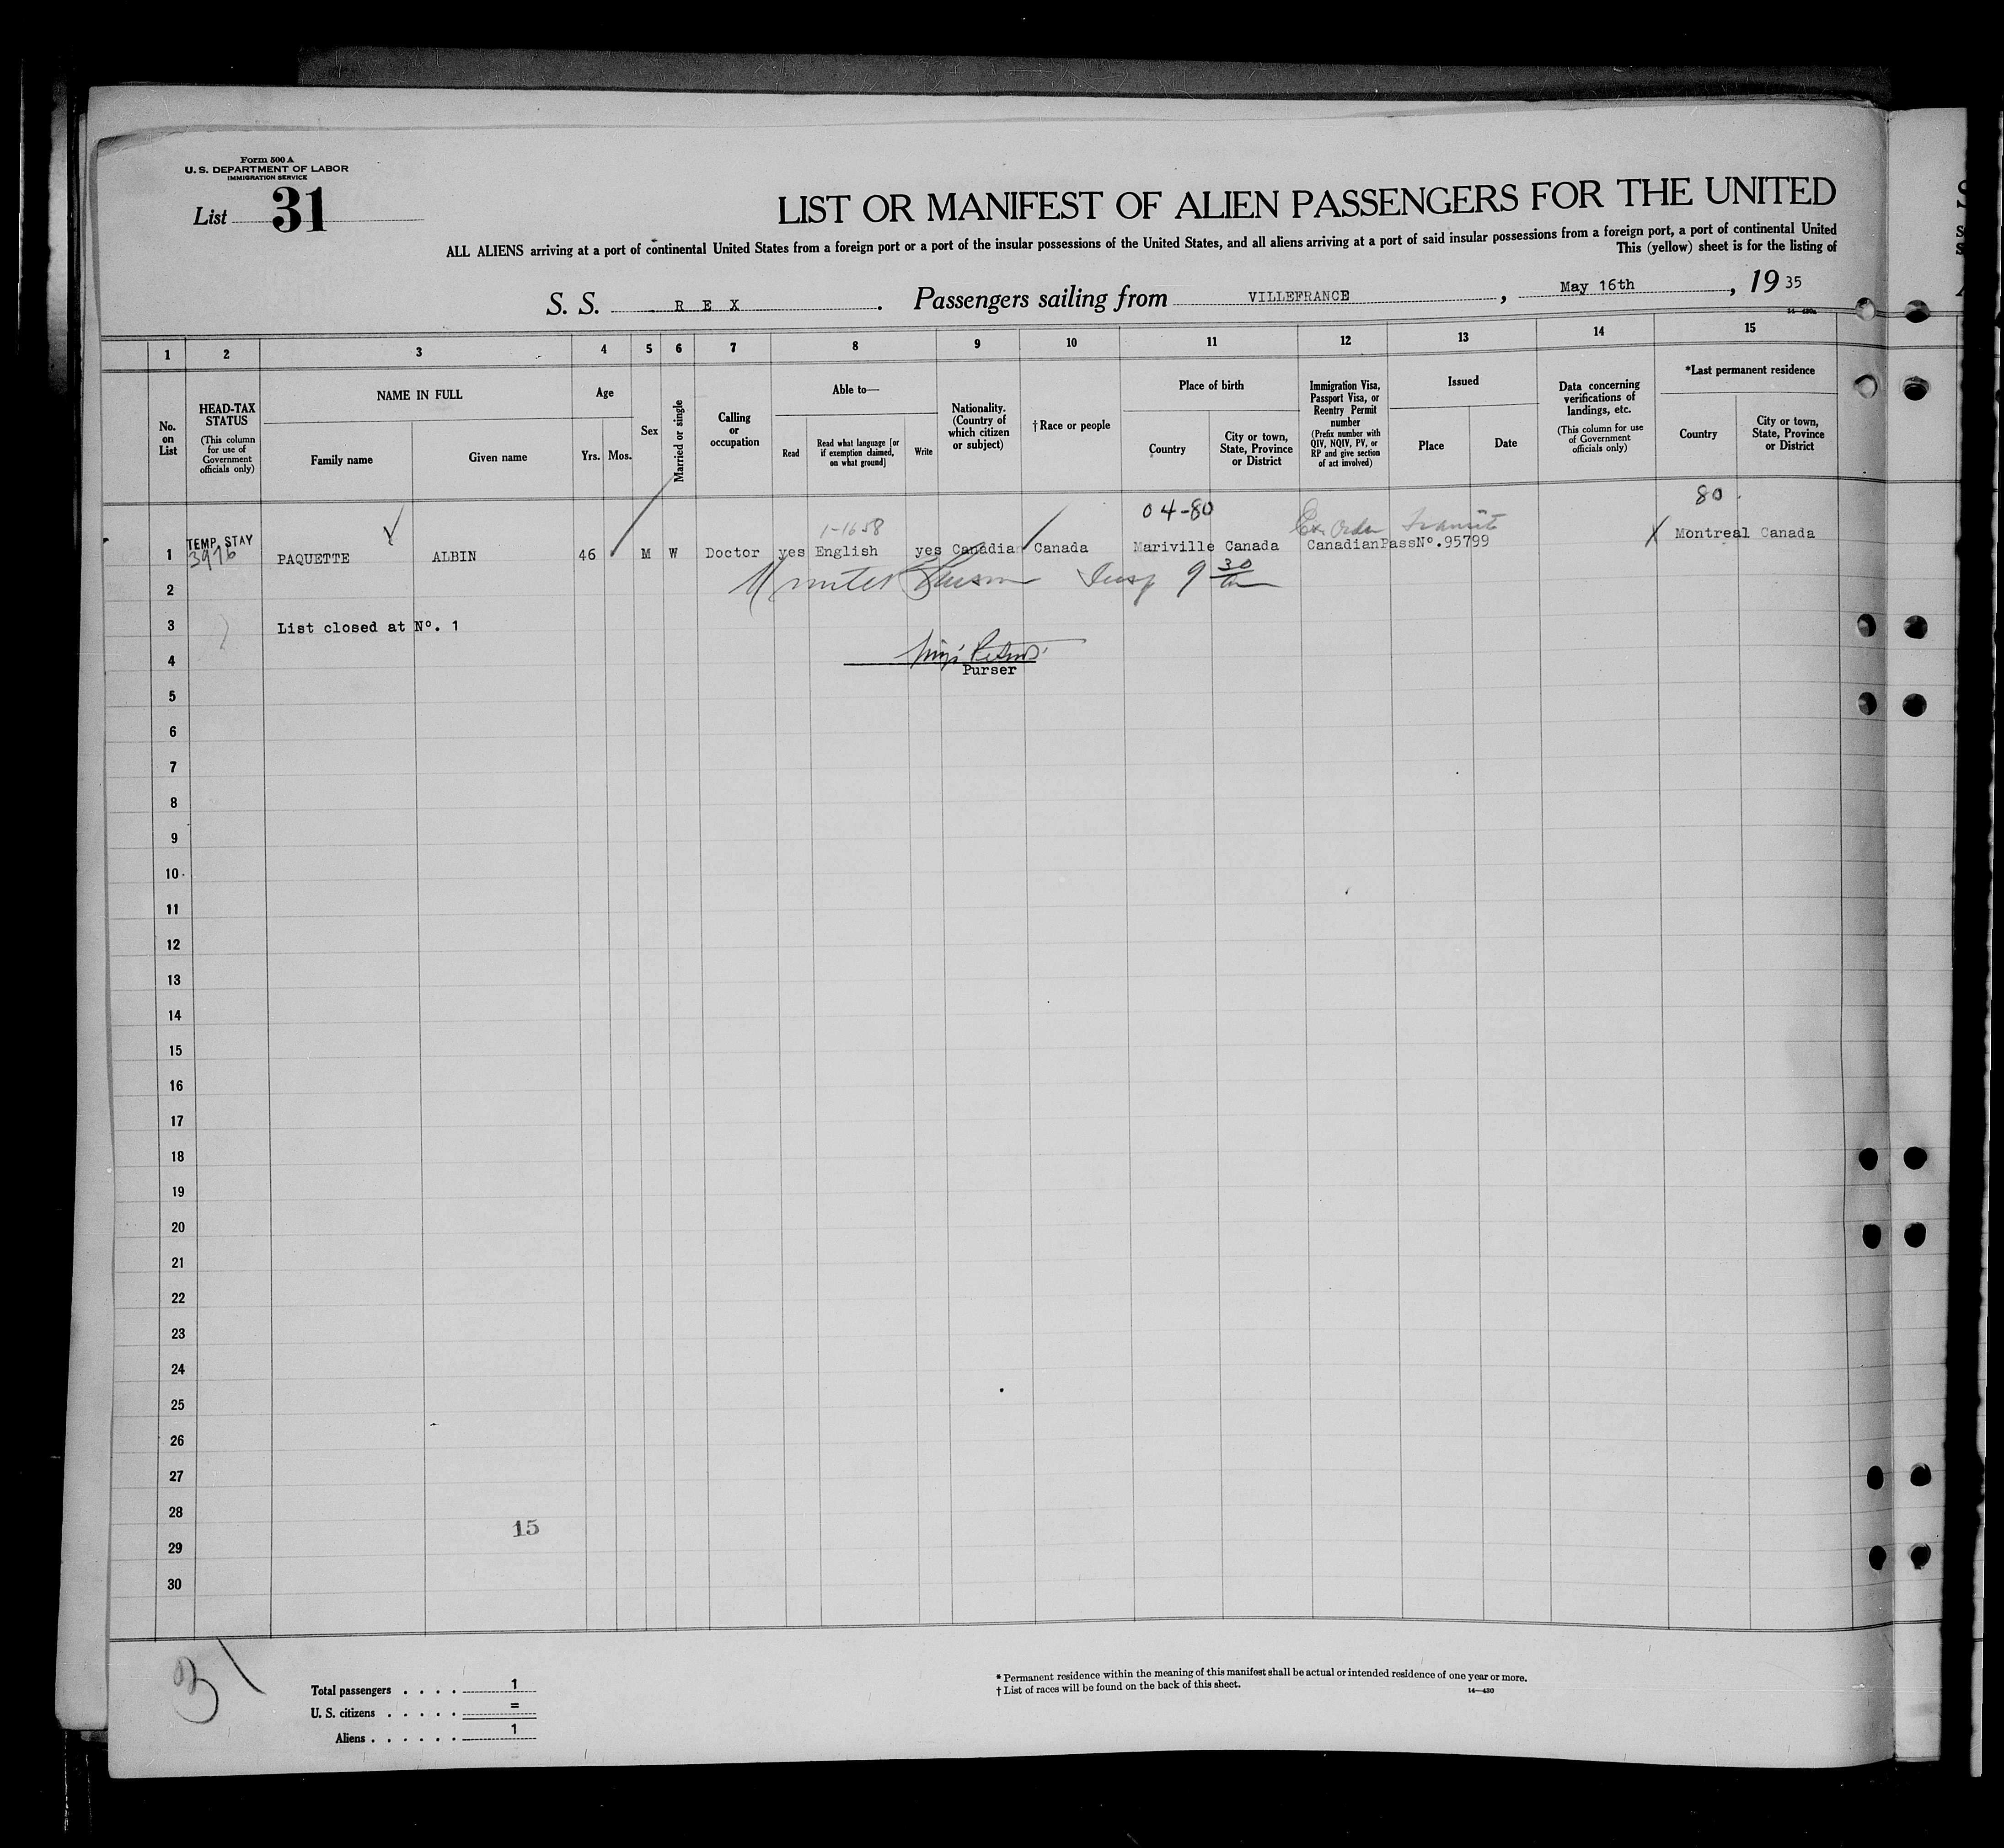 Form 500 A
U. S. DEPARTMENT OF LABOR
IMMIGRATION SERVICE
List 31
LIST OR MANIFEST OF ALIEN PASSENGERS FOR THE UNITED
ALL ALIENS arriving at a port of continental United States from a foreign port or a port of the insular possessions of the United States, and all aliens arriving at a port of said insular possessions from a foreign port, a port of continental United
This (yellow) sheet is for the listing of
S. S. R E X . Passengers sailing from VILLEFRANCE , May 16th , 19 35
14—430a
1 2 3 4 5 6 7 8 9 10 11 12 13 14 15
No. on List
HEAD-TAX STATUS
(This column for use of Government officials only)
NAME IN FULL
Family name
Given name
Age
Yrs. Mos.
Sex
Married or single
Calling or occupation
Able to—
Read
Read what language [or if exemption claimed, on what ground]
Write
Nationality. (Country of which citizen or subject)
† Race or people
Place of birth
Country
City or town, State, Province or District
Immigration Visa, Passport Visa, or Reentry Permit number
(Prefix number with QIV, NQIV, PV, or RP and give section of act involved)
Issued
Place
Date
Data concerning verifications of landings, etc.
(This column for use of Government officials only)
*Last permanent residence
Country
City or town, State, Province or District
04-80
80
1-1658
Ex. Order Transit
TEMP. STAY
3976
1 PAQUETTE ALBIN 46 M W Doctor yes English yes Canadian Canada Mariville Canada CanadianPassNº.95799 X Montreal Canada
2 Insp 9 30
3 List closed at Nº. 1
4
Purser
5
6
7
8
9
10
11
12
13
14
15
16
17
18
19
20
21
22
23
24
25
26
27
28
15
29
30
31
Total passengers . . . . 1
U. S. citizens . . . . . =
Aliens . . . . . . 1
* Permanent residence within the meaning of this manifest shall be actual or intended residence of one year or more.
† List of races will be found on the back of this sheet.
14—430